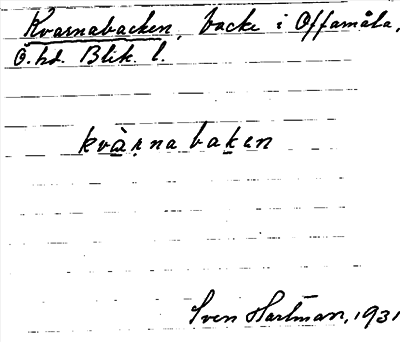 Kvarnabacken, backe i Offamåla,
Ö. hd. Blek. l.
kvàrnabaken
Sven Hartman, 1931